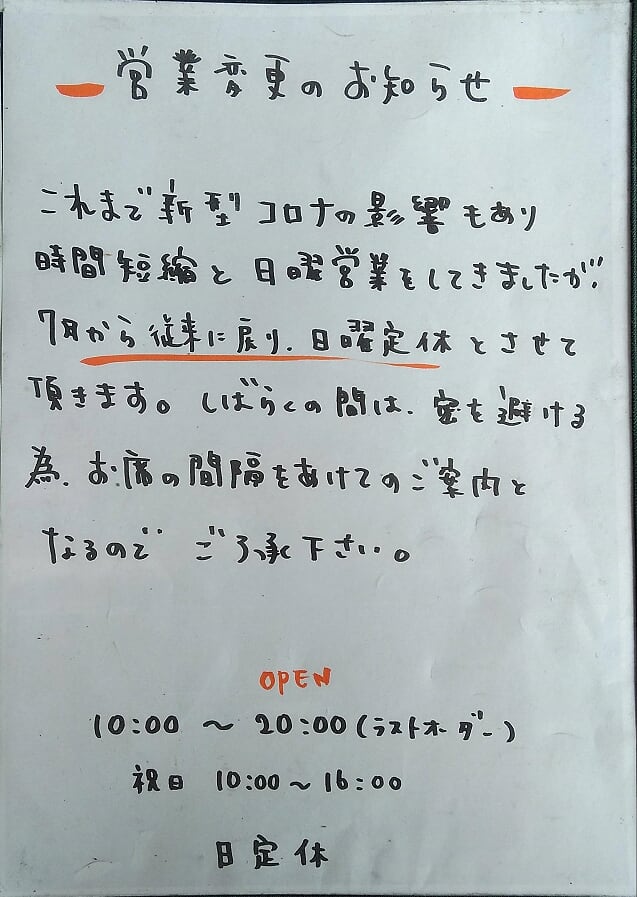 営業変更のお知らせ
これまで新型コロナの影響もあり
時間短縮と日曜営業をしてきましたが、
7月から従来に戻り、日曜定休とさせて
頂きます。しばらくの間は、密を避ける
為、お席の間隔をあけてのご案内と
なるので ご了承下さい。
OPEN
10:00 〜 20:00(ラストオーダー)
祝日 10:00〜16:00
日定休